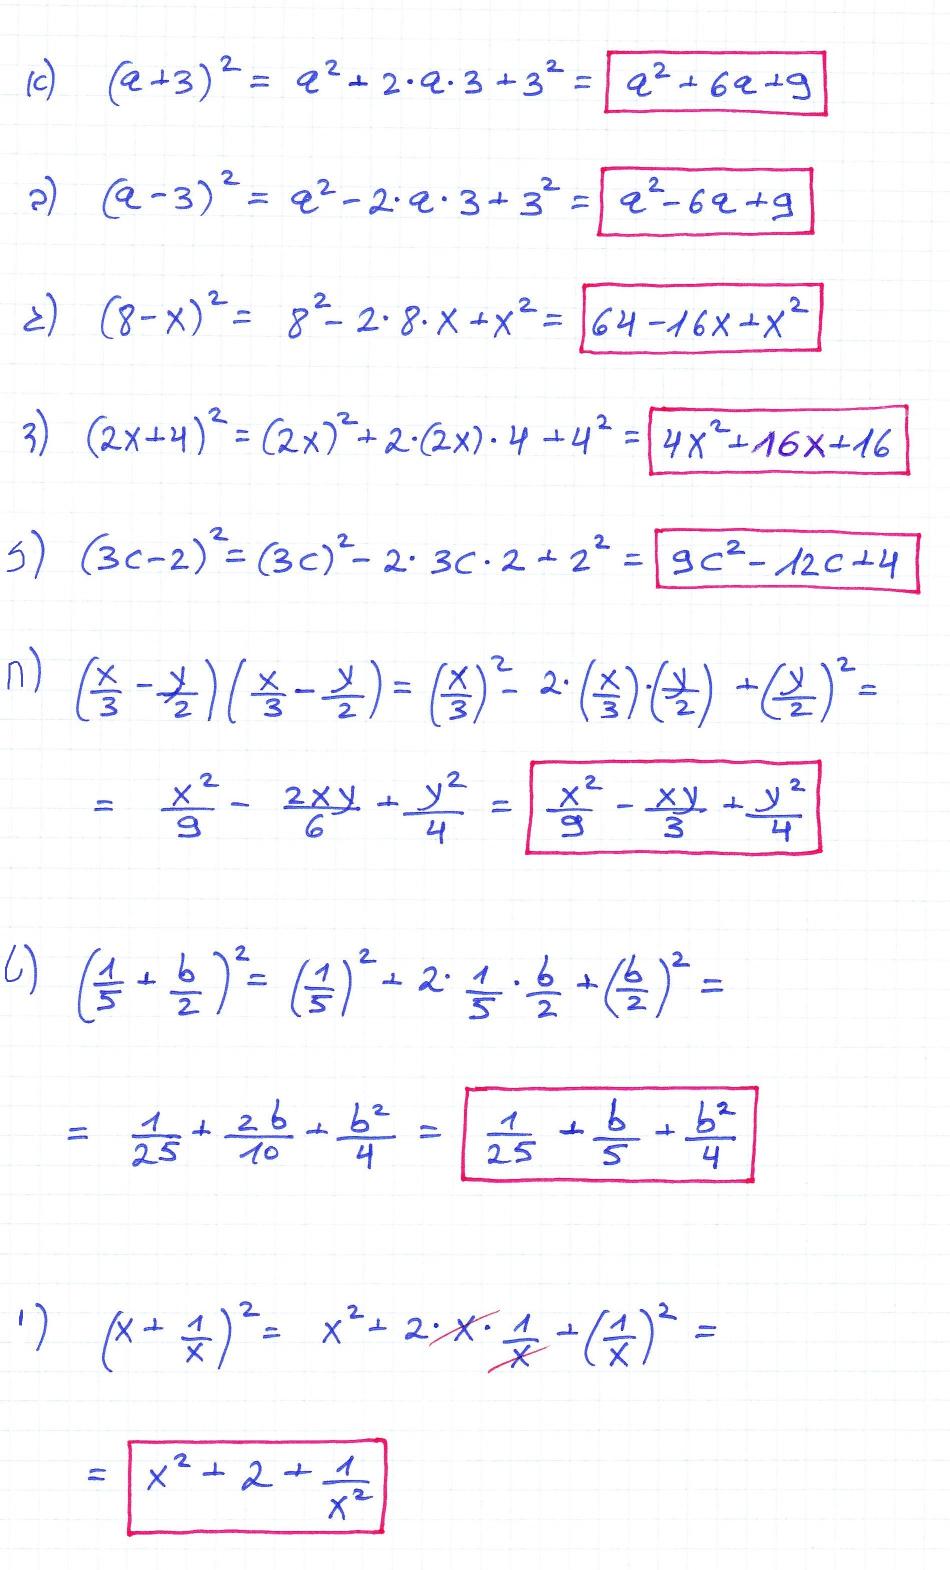 א) (a+3)² = a² + 2·a·3 + 3² = a² + 6a + 9
(a-3)² = a² - 2·a·3 + 3² = a² - 6a + 9
(8-x)² = 8² - 2·8·x + x² = 64 - 16x + x²
(2x+4)² = (2x)² + 2·(2x)·4 + 4² = 4x² + 16x + 16
(3c-2)² = (3c)² - 2·3c·2 + 2² = 9c² - 12c + 4
(x/3 - y/2)(x/3 - y/2) = (x/3)² - 2·(x/3)·(y/2) + (y/2)² =
= x²/9 - 2xy/6 + y²/4 = x²/9 - xy/3 + y²/4
(1/5 + b/2)² = (1/5)² + 2·1/5·b/2 + (b/2)² =
= 1/25 + 2b/10 + b²/4 = 1/25 + b/5 + b²/4
(x + 1/x)² = x² + 2·x·1/x + (1/x)² =
= x² + 2 + 1/x²